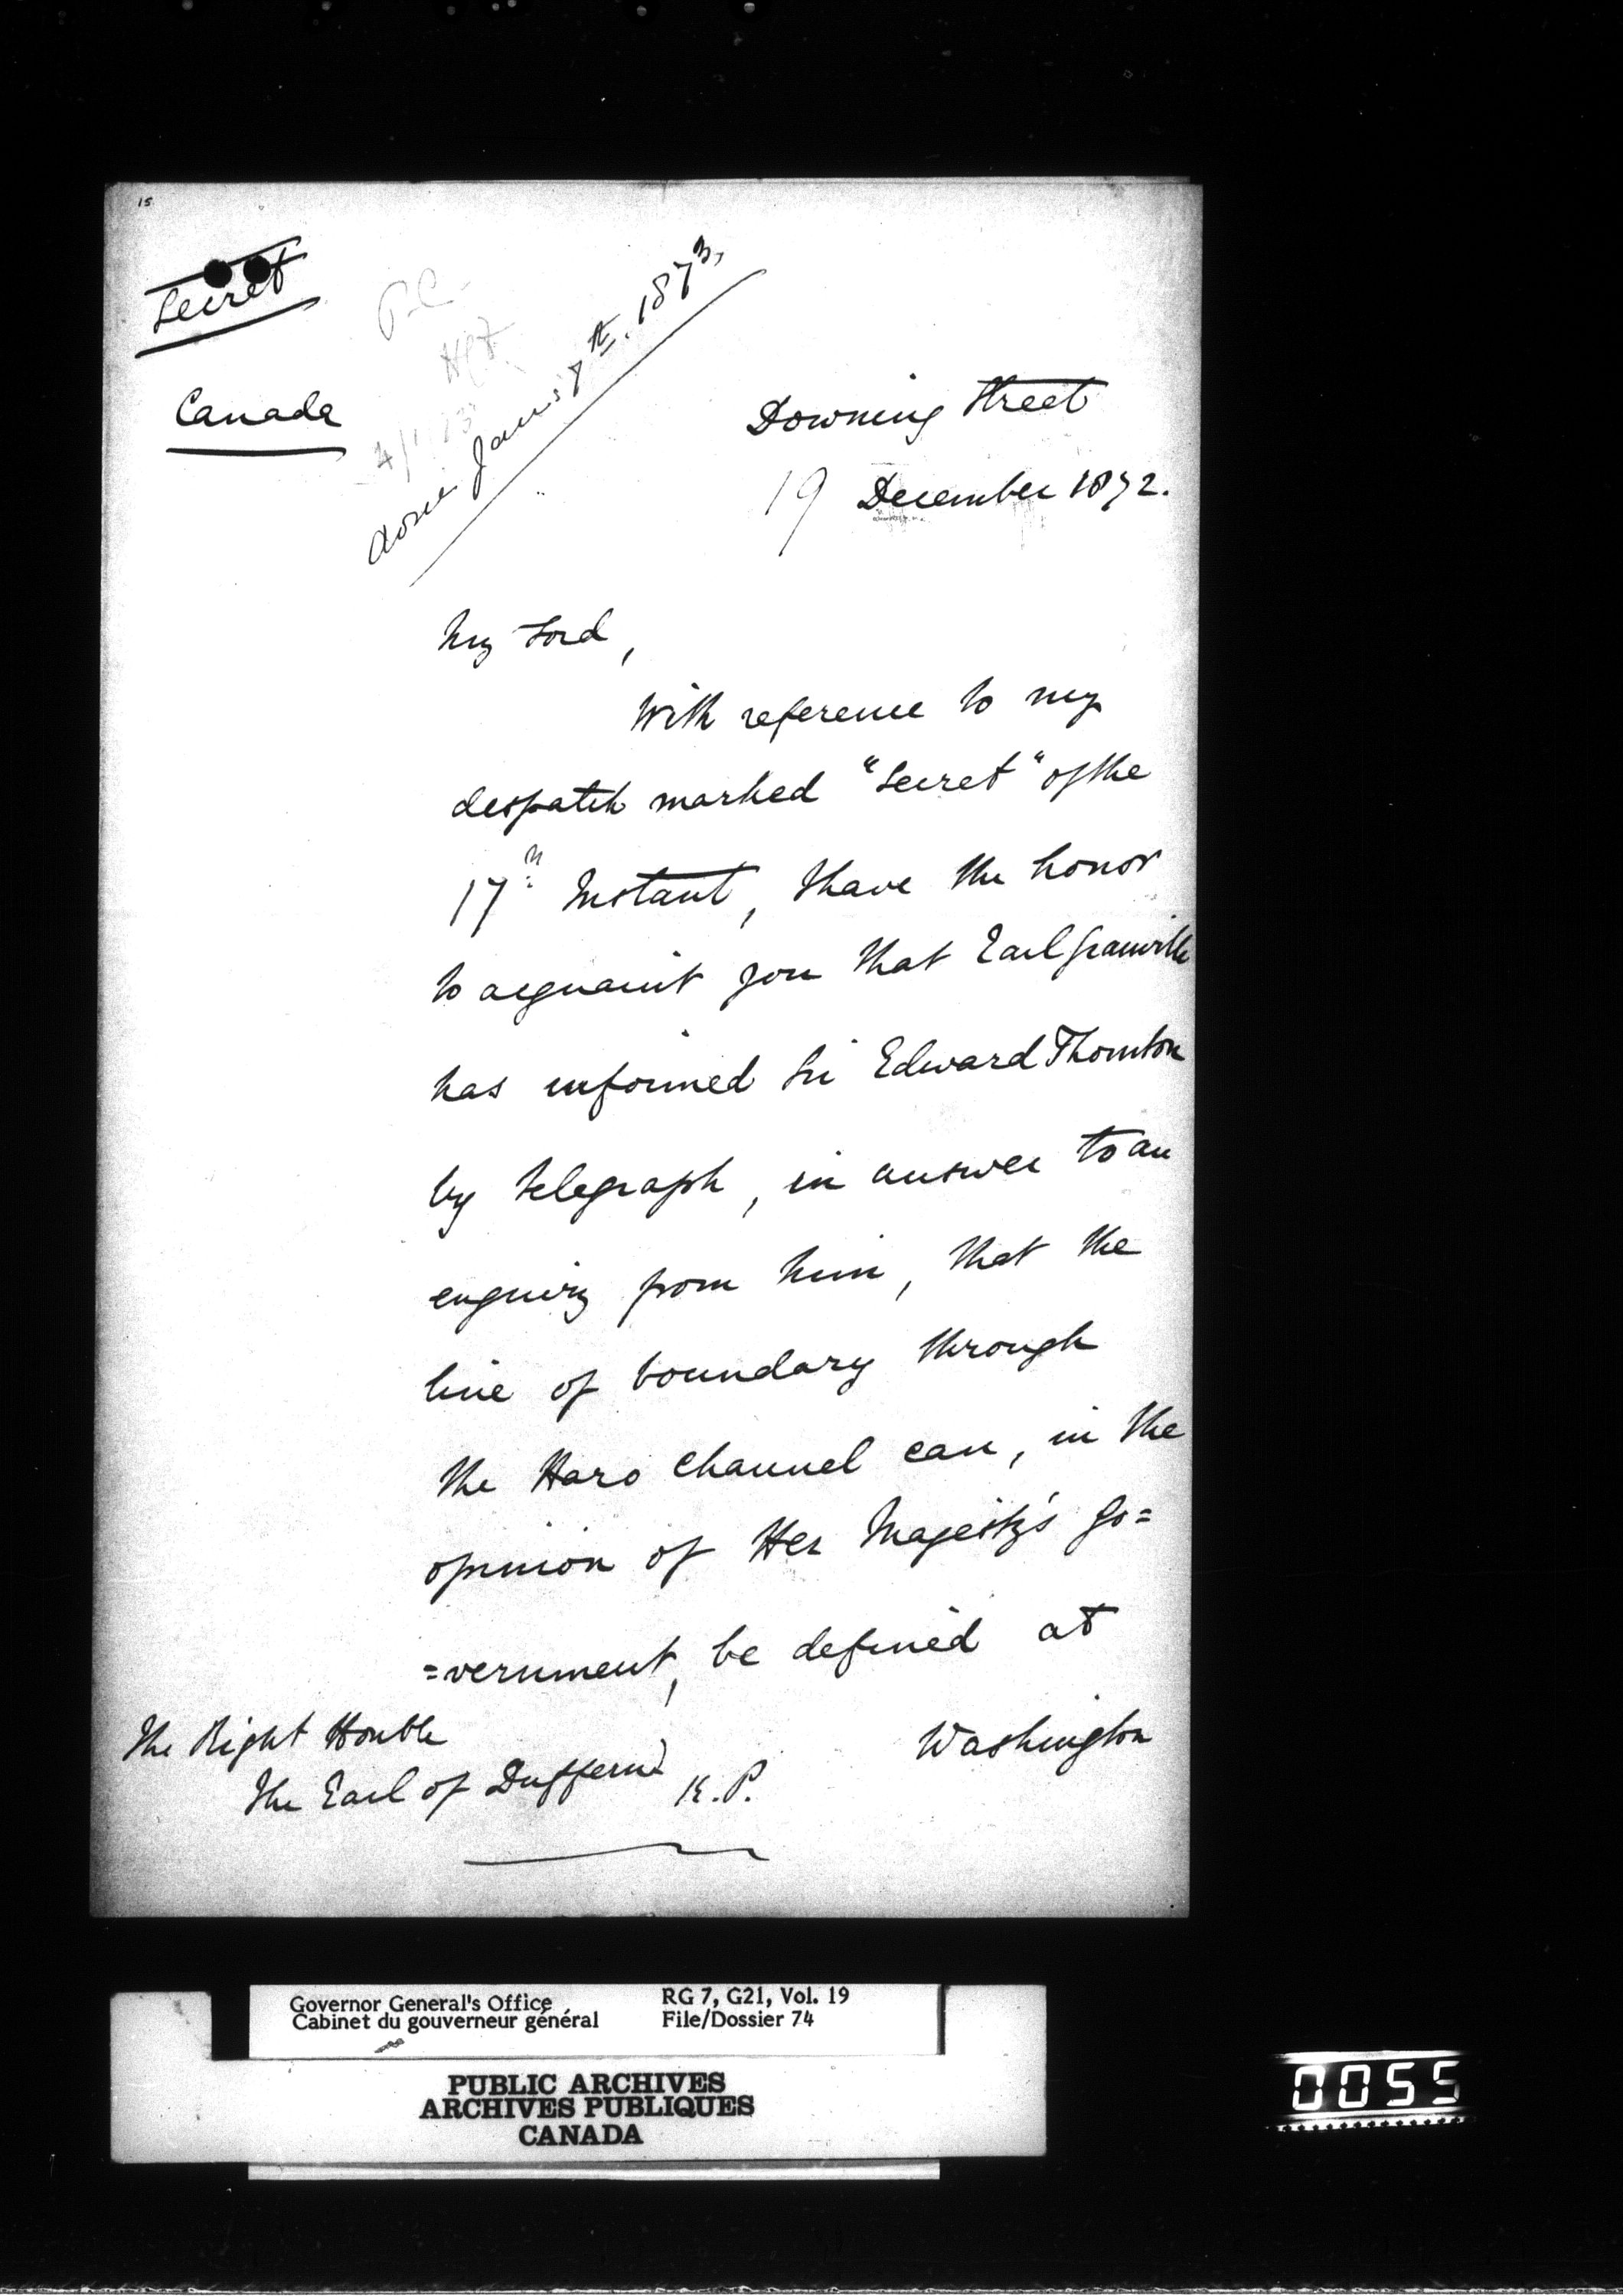 15
Secret
Canada
P.C.
Jany 7th. 1873,
Downing Street
19 December 1872.
My Lord,
With reference to my
despatch marked "Secret" of the
17th Instant, I have the honor
to acquaint you that Earl Granville
has informed Sir Edward Thornton
by telegraph, in answer to an
enquiry from him, that the
line of boundary through
the Haro Channel can, in the
opinion of Her Majesty's Go=
=vernment, be defined at
Washington
The Right Honble
The Earl of Dufferin K.P.
Governor General's Office
Cabinet du gouverneur général
RG 7, G21, Vol. 19
File/Dossier 74
PUBLIC ARCHIVES
ARCHIVES PUBLIQUES
CANADA
0055